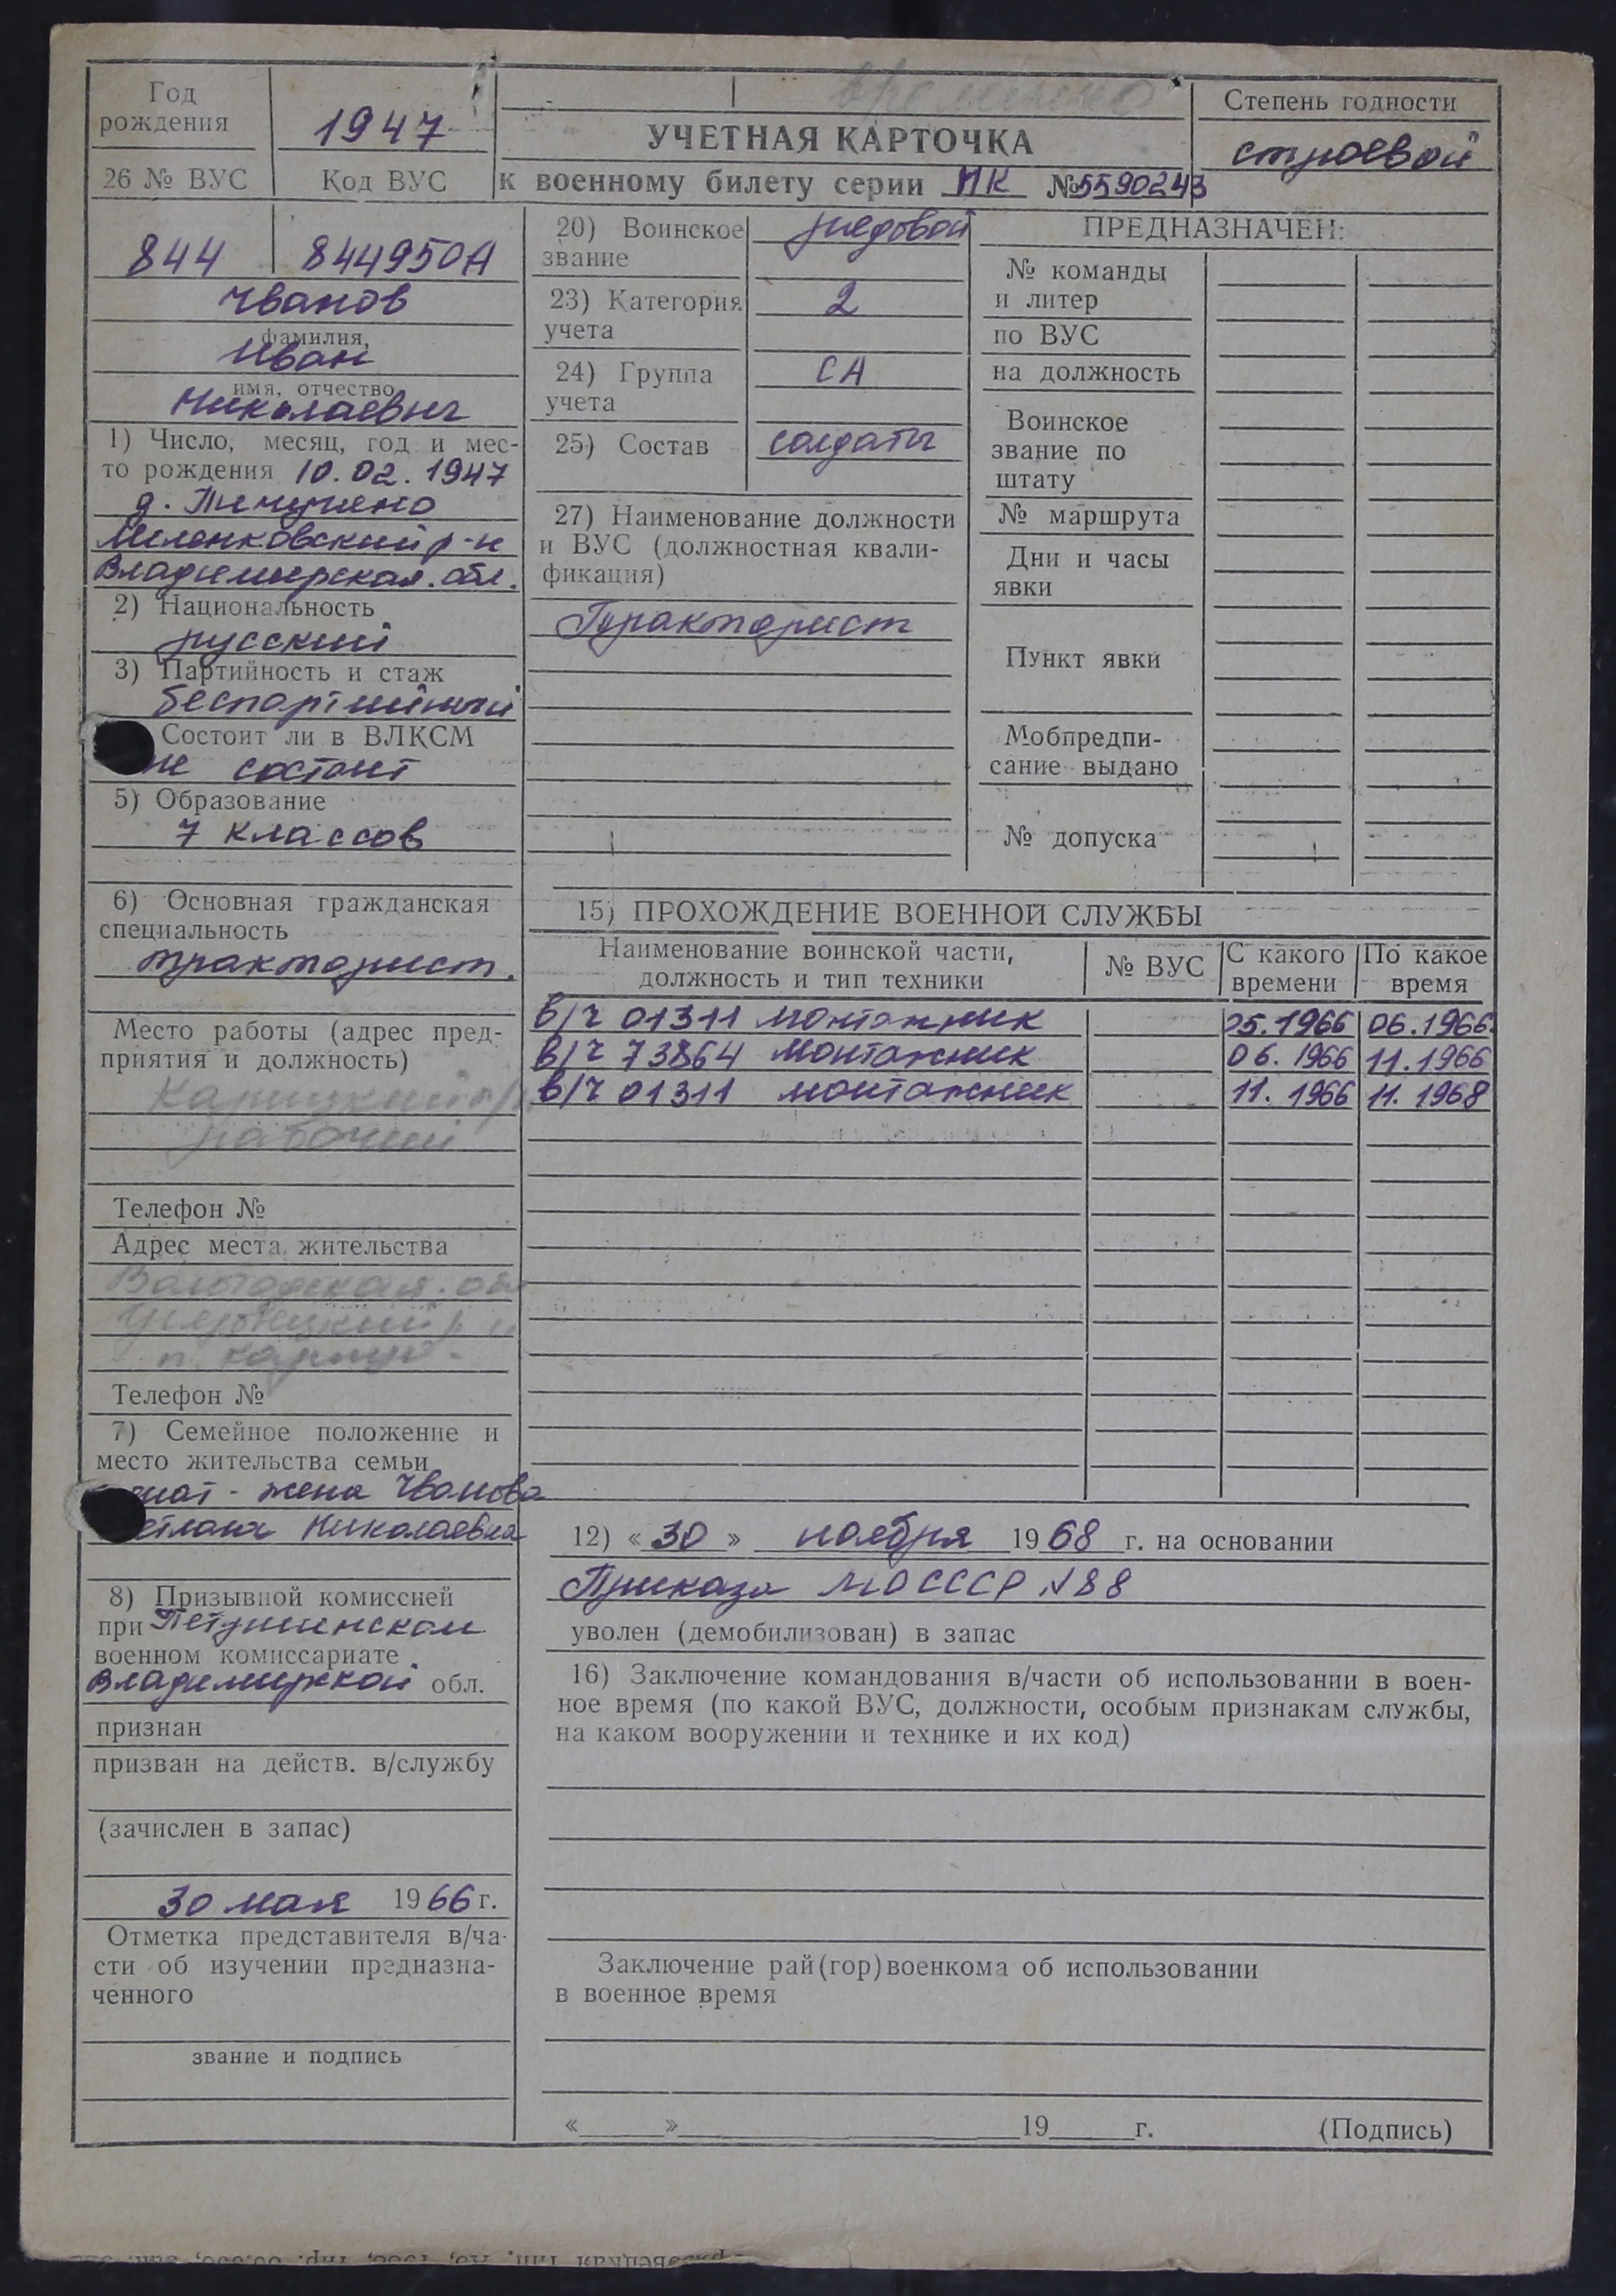 временно
Год
рождения
1947
26 № ВУС
Код ВУС
УЧЕТНАЯ КАРТОЧКА
к военному билету серии НК №5590243
Степень годности
строевой
844
844950А
Чванов
фамилия,
Иван
имя, отчество
Николаевич
1) Число, месяц, год и мес-
то рождения 10.02.1947
д.
Меленковский р-н
Владимирская обл.
2) Национальность
русский
3) Партийность и стаж
беспартийный
Состоит ли в ВЛКСМ
не состоит
5) Образование
7 классов
6) Основная гражданская
специальность
тракторист.
Место работы (адрес пред-
приятия и должность)
рабочий
Телефон №
Адрес места жительства
Вологодская обл
р-н
п.
Телефон №
7) Семейное положение и
место жительства семьи
женат - жена Чванова
Николаевна
8) Призывной комиссией
при Петушинском
военном комиссариате
Владимирской обл.
признан
призван на действ. в/службу
(зачислен в запас)
30 мая 1966 г.
Отметка представителя в/ча-
сти об изучении предназна-
ченного
звание и подпись
20) Воинское
звание
рядовой
23) Категория
учета
2
24) Группа
учета
СА
25) Состав
солдаты
27) Наименование должности
и ВУС (должностная квали-
фикация)
Тракторист
ПРЕДНАЗНАЧЕН:
№ команды
и литер
по ВУС
на должность
Воинское
звание по
штату
№ маршрута
Дни и часы
явки
Пункт явки
Мобпредпи-
сание выдано
№ допуска
15) ПРОХОЖДЕНИЕ ВОЕННОЙ СЛУЖБЫ
Наименование воинской части,
должность и тип техники
№ ВУС
С какого
времени
По какое
время
в/ч 01311 монтажник 05.1966 06.1966
в/ч 73864 монтажник 06.1966 11.1966
в/ч 01311 монтажник 11.1966 11.1968
12) «30» ноября 1968 г. на основании
Приказа МО СССР N 88
уволен (демобилизован) в запас
16) Заключение командования в/части об использовании в воен-
ное время (по какой ВУС, должности, особым признакам службы,
на каком вооружении и технике и их код)
Заключение рай(гор)военкома об использовании
в военное время
«____»____________19____г. (Подпись)